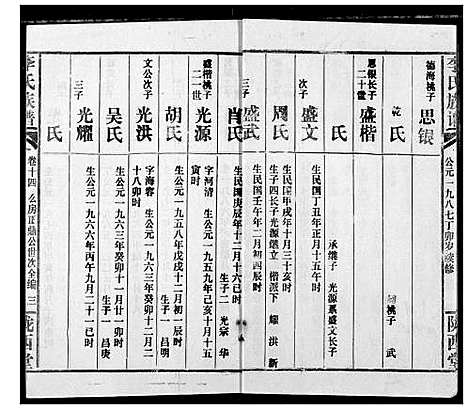 李氏族譜
公元一九八七丁卯岁续修
陇西堂
德海桃子
思银
乾氏
嗣桃子 武
思银长子
二十世
盛楷
氏
承继子 光源系盛文长子
次子
盛文
生民国丁丑年正月十五午时
周氏
生民国甲戌年十月三十亥时
生子四长子光源继立 楷派下 耀 洪 新
三子
盛武
生民国壬午年二月初四辰时
肖氏
生民国庚辰年十二月十六巳时
生子二 光宗 华
盛楷桃子
二一世
光源
字河清 生公元一九五九年己亥十月十五
寅时
胡氏
生公元一九五八年戊戌十二月初一辰时
生子一 昌明
文公次子
光洪
字海容 生公元一九六三年癸卯十二月二
十八卯时
吴氏
生公元一九六三年癸卯十一月廿一卯时
生子一 昌庚
三子
光耀
生公元一九六六年丙午九月二十一巳时
氏
李氏族譜
卷十四 么房正鼎公世次全编 三
陇西堂